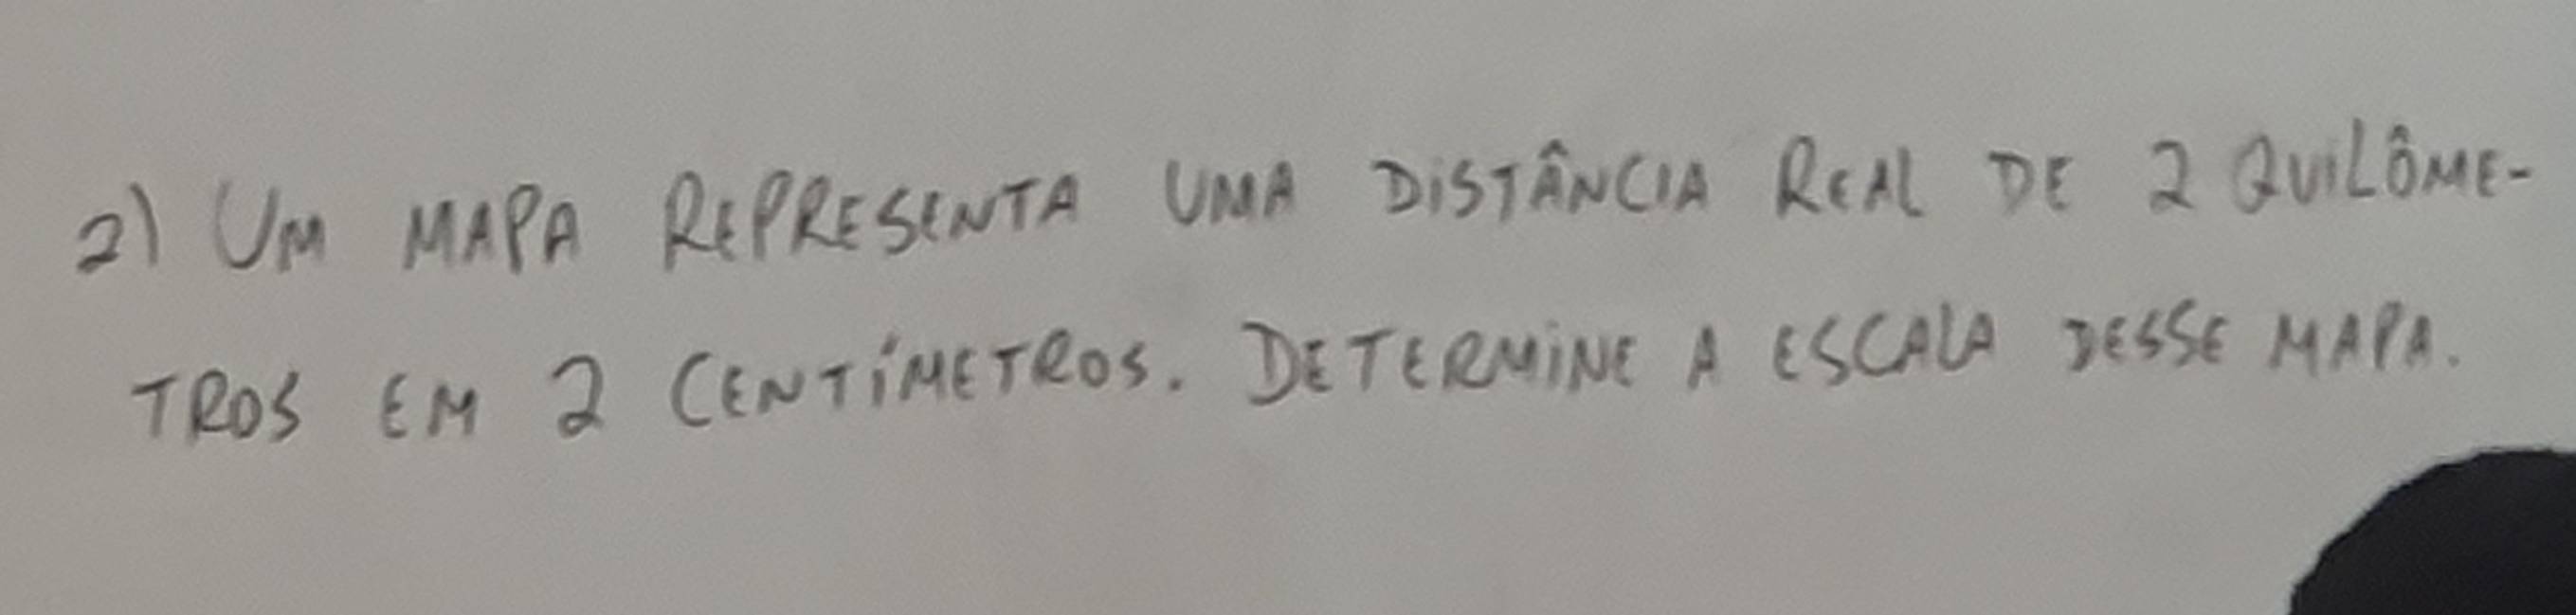 2) UM MAPA REPRESENTA UMA DISTÂNCIA REAL DE 2 QUILÔME-
TROS EM 2 CENTÍMETROS. DETERMINE A ESCALA DESSE MAPA.